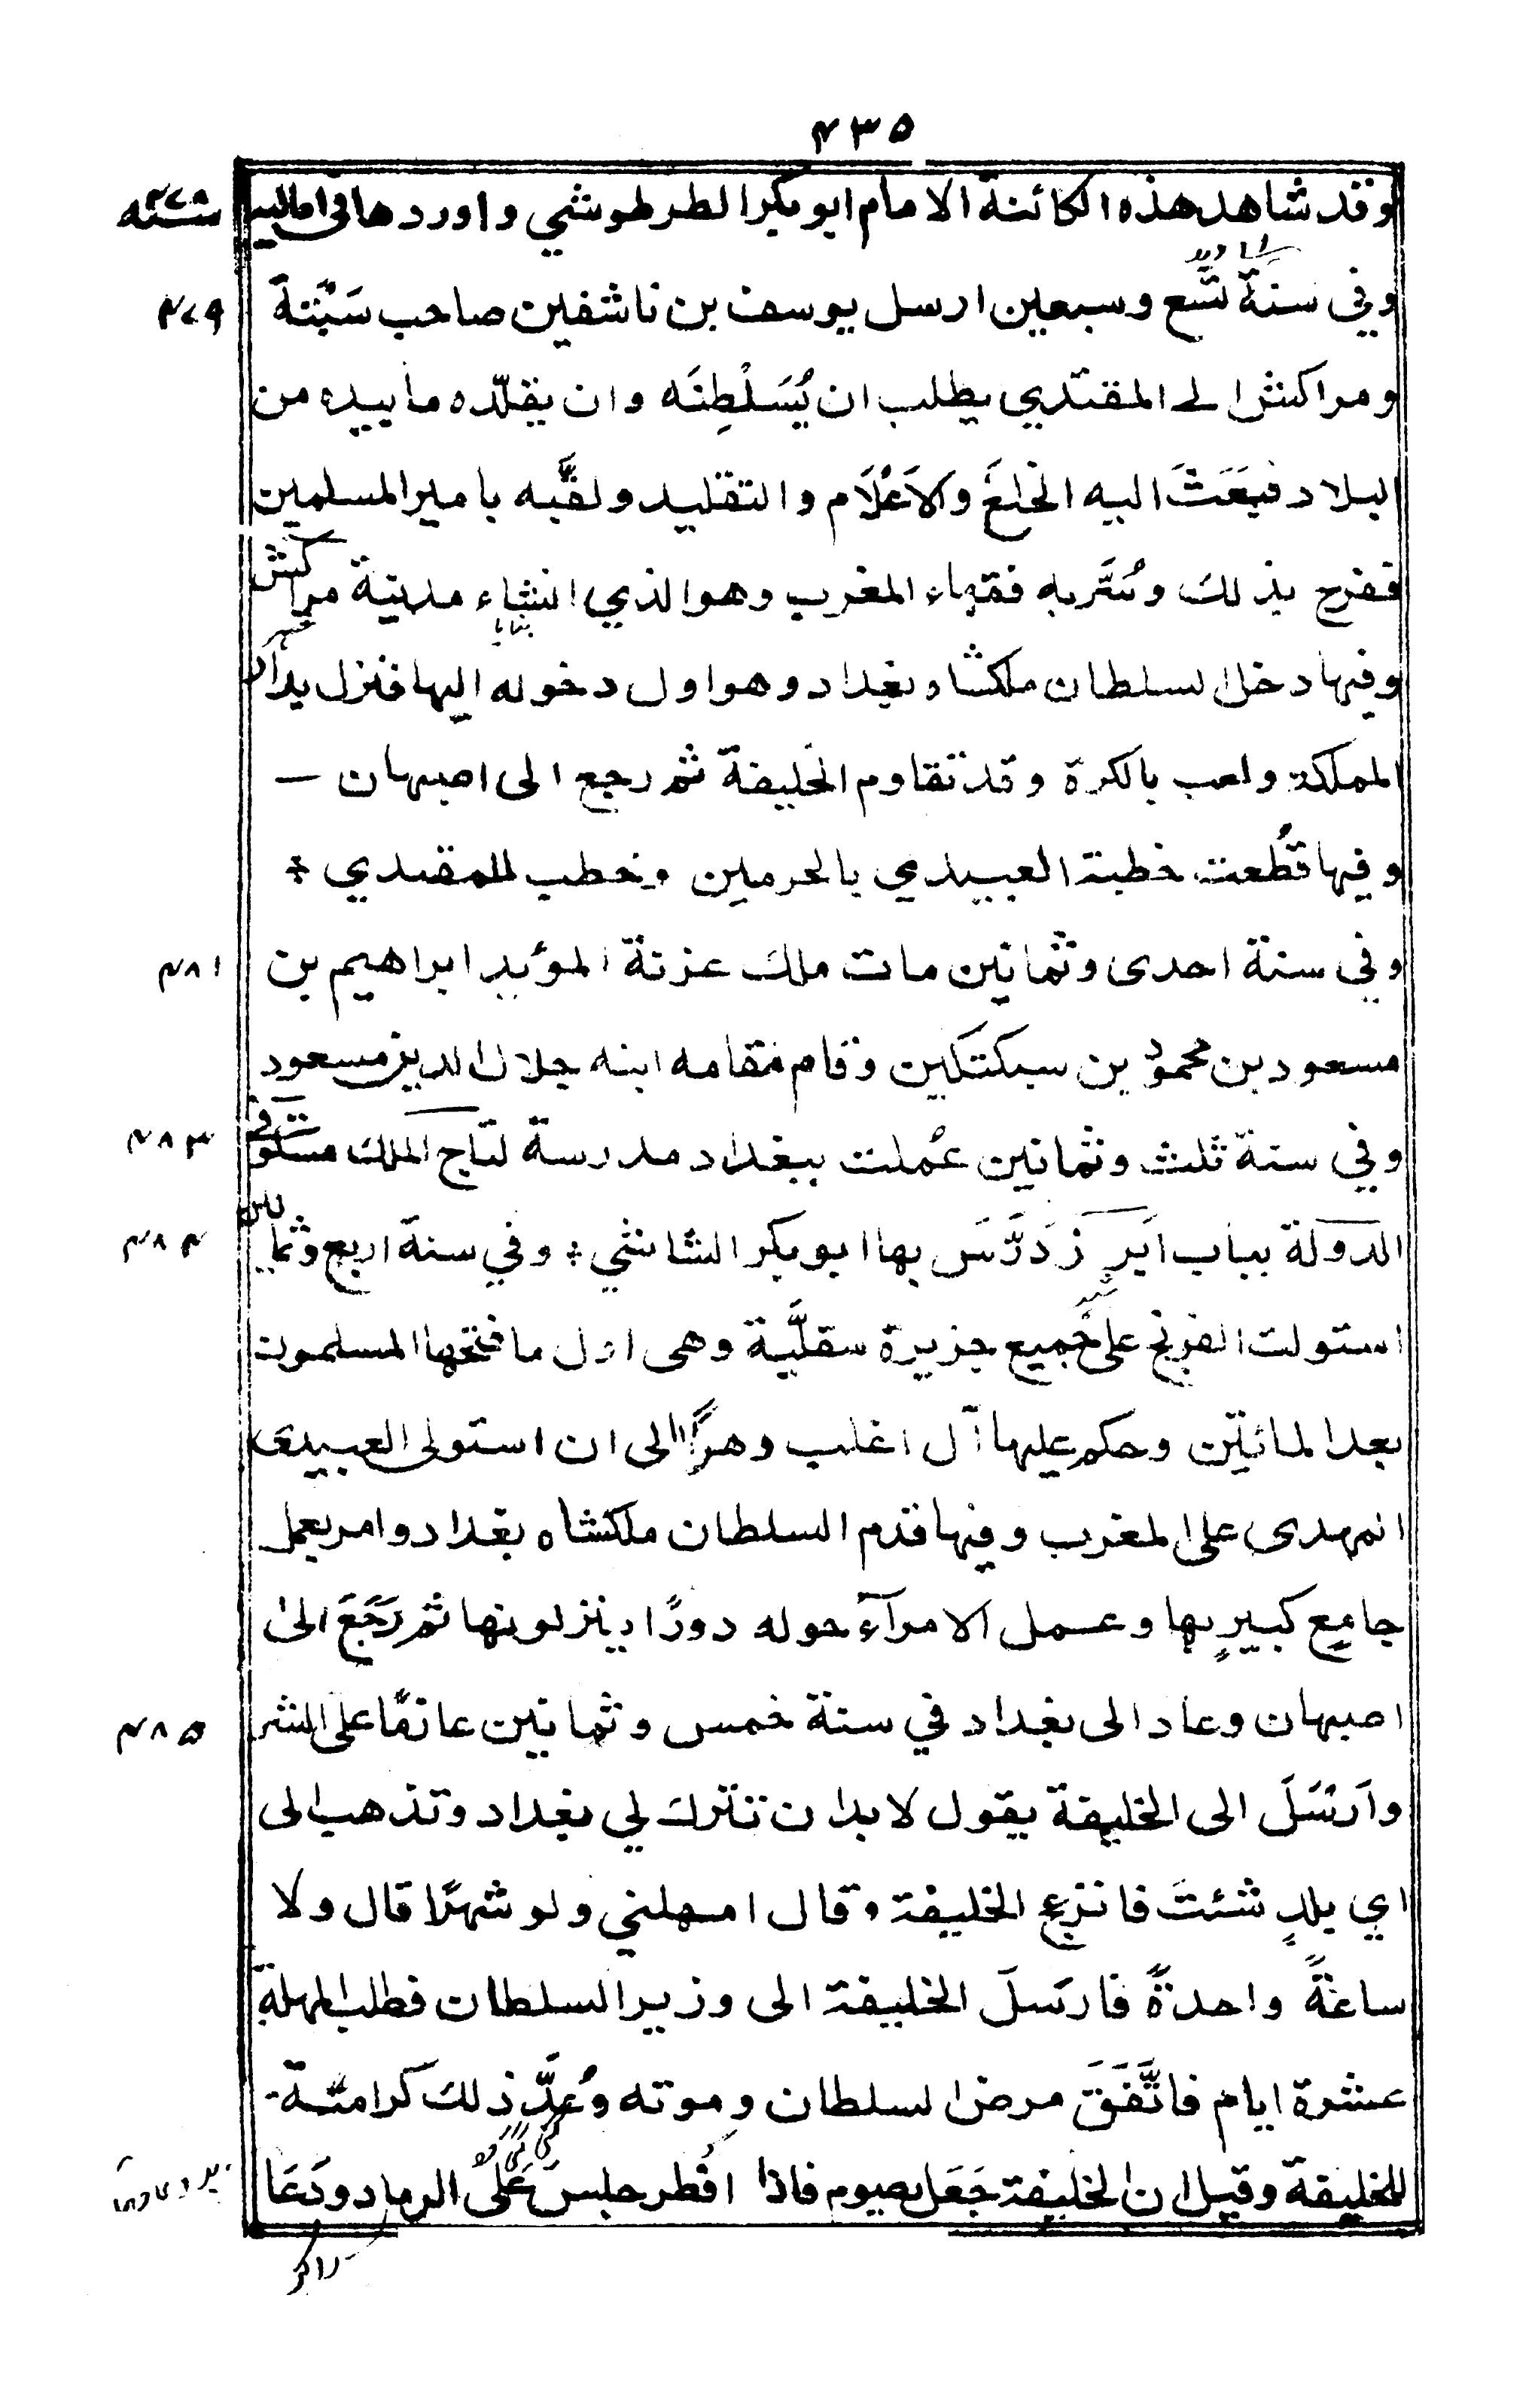 ٤٣٥
وقد شاهد هذه الكائنة الامام ابو بكر الطرطوشي واوردها في اماليه
سنه ٤٧٨
وفي سنة تسع وسبعين ارسل يوسف بن تاشفين صاحب سَبْتة
٤٧٩
ومراكش الى المقتدي يطلب ان يُسَلْطِنَه وان يقلّده ما بيده من
البلاد فبَعَثَ اليه الخِلَعَ والاَعْلَام والتقليد ولقَّبه بامير المسلمين
ففرح بذلك وسُرَّبه فقهاء المغرب وهو الذي انشاء مدينة مراكش
وفيها دخل السلطان ملكشاه بغداد وهو اول دخوله اليها فنزل بدار
المملكة ولعب بالكرة وقد تقاوم الخليفة ثم رجع الى اصبهان —
وفيها قُطعت خطبة العبيدي بالحرمين وخطب للمقتدي ؞
وفي سنة احدى وثمانين مات ملك غزنة المؤيد ابراهيم بن
٤٨١
مسعود بن محمود بن سبكتكين وقام مقامه ابنه جلال الدين مسعود
وفي سنة ثلث وثمانين عُملت ببغداد مدرسة لتاج الملك مستوفي
٤٨٣
الدولة بباب اَبرز دَرَّسَ بها ابو بكر الشاشي ؞ وفي سنة اربع وثمانين
٤٨٤
استولت الفرنج على جميع جزيرة سقلّية وهى اول ما فتحها المسلمون
بعد المائتين وحكم عليها آل اغلب وهرًا الى ان استولى العبيدى
المهدى على المغرب وفيها قدم السلطان ملكشاه بغداد وامر بعمل
جامع كبيرٍ بها وعمل الامرآء حوله دورًا ينزلونها ثم رَجَعَ الى
اصبهان وعاد الى بغداد في سنة خمس وثمانين عازمًا على الشر
٤٨٥
واَرْسَلَ الى الخليفة يقول لا بد ان تترك لي بغداد وتذهب الى
اي بلدٍ شئتَ فانزعج الخليفة وقال امهلني ولو شهرًا قال ولا
ساعةً واحدةً فارسَلَ الخليفة الى وزير السلطان فطلب المهلة
عشرة ايام فاتَّفَقَ مرض السلطان وموته وعُدَّ ذلك كرامة
للخليفة وقيل ان الخليفة جَعَل يصوم فاذا افطر جلسَ عَلَى الرماد ودَعَا